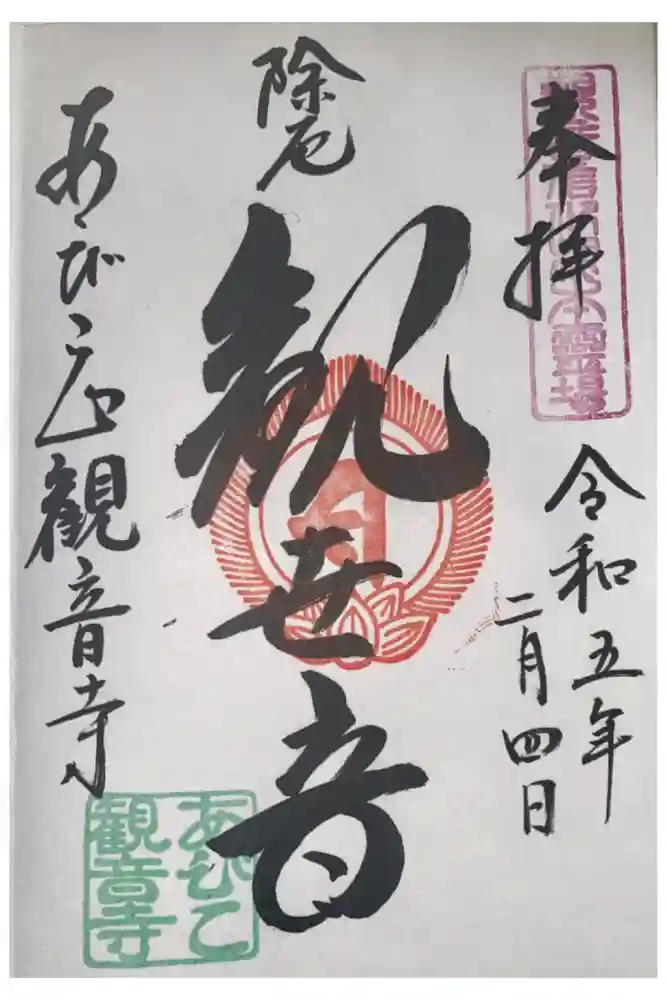 奉拝
令和五年
二月四日
除厄
観世音
あびこ山観音寺
あびこ
観音寺